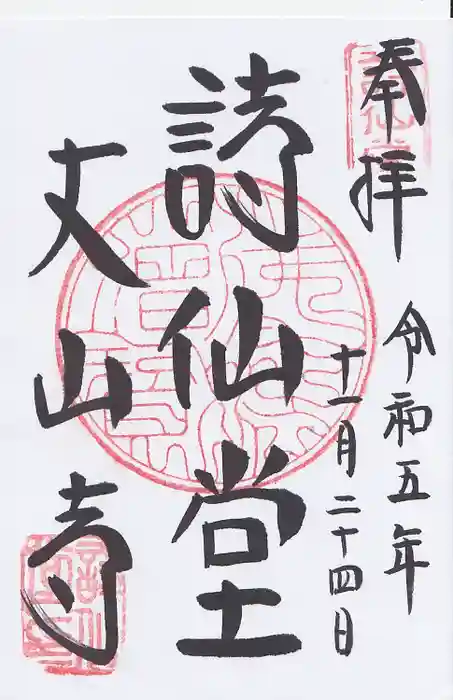 奉拝
令和五年
十一月二十四日
詩仙堂
丈山寺